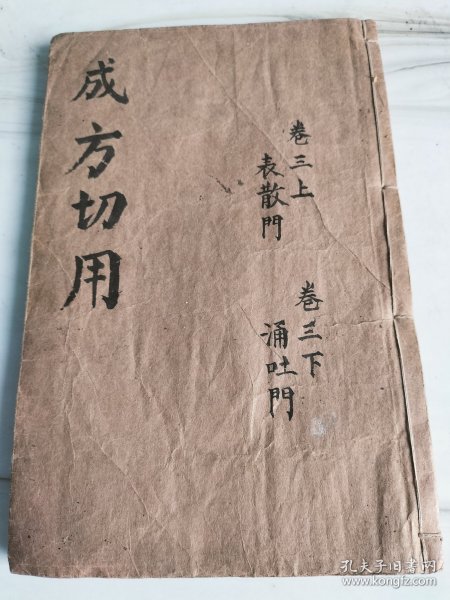 成方切用
卷三上
表散門
卷三下
涌吐門
孔夫子旧书网
www.kongfz.com